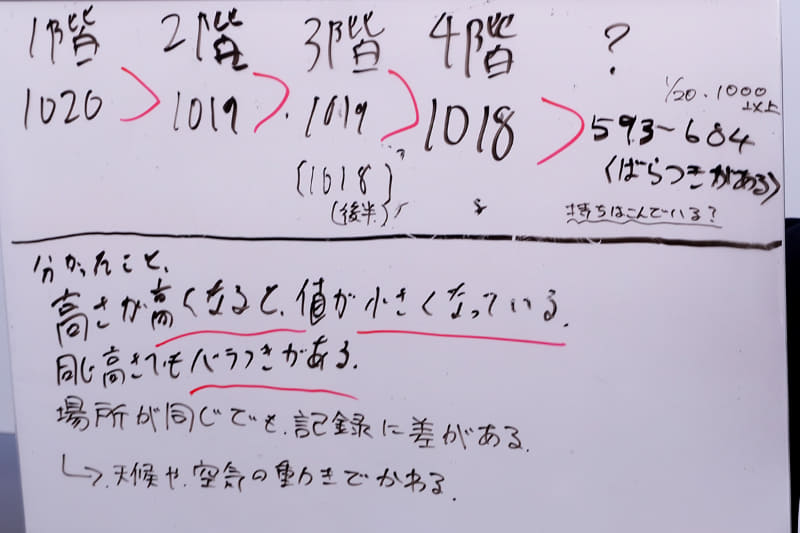 1階 2階 3階 4階 ?
1020 > 1019 > 1019 > 1018 > 593~684
1/20. 1000以上
(1018)
(後半)
(ばらつきがある)
持ちはこんでいる?
分かったこと、
高さが高くなると、値が小さくなっている。
同じ高さでもバラつきがある。
場所が同じでも、記録に差がある。
↳天候や、空気の動きでかわる。